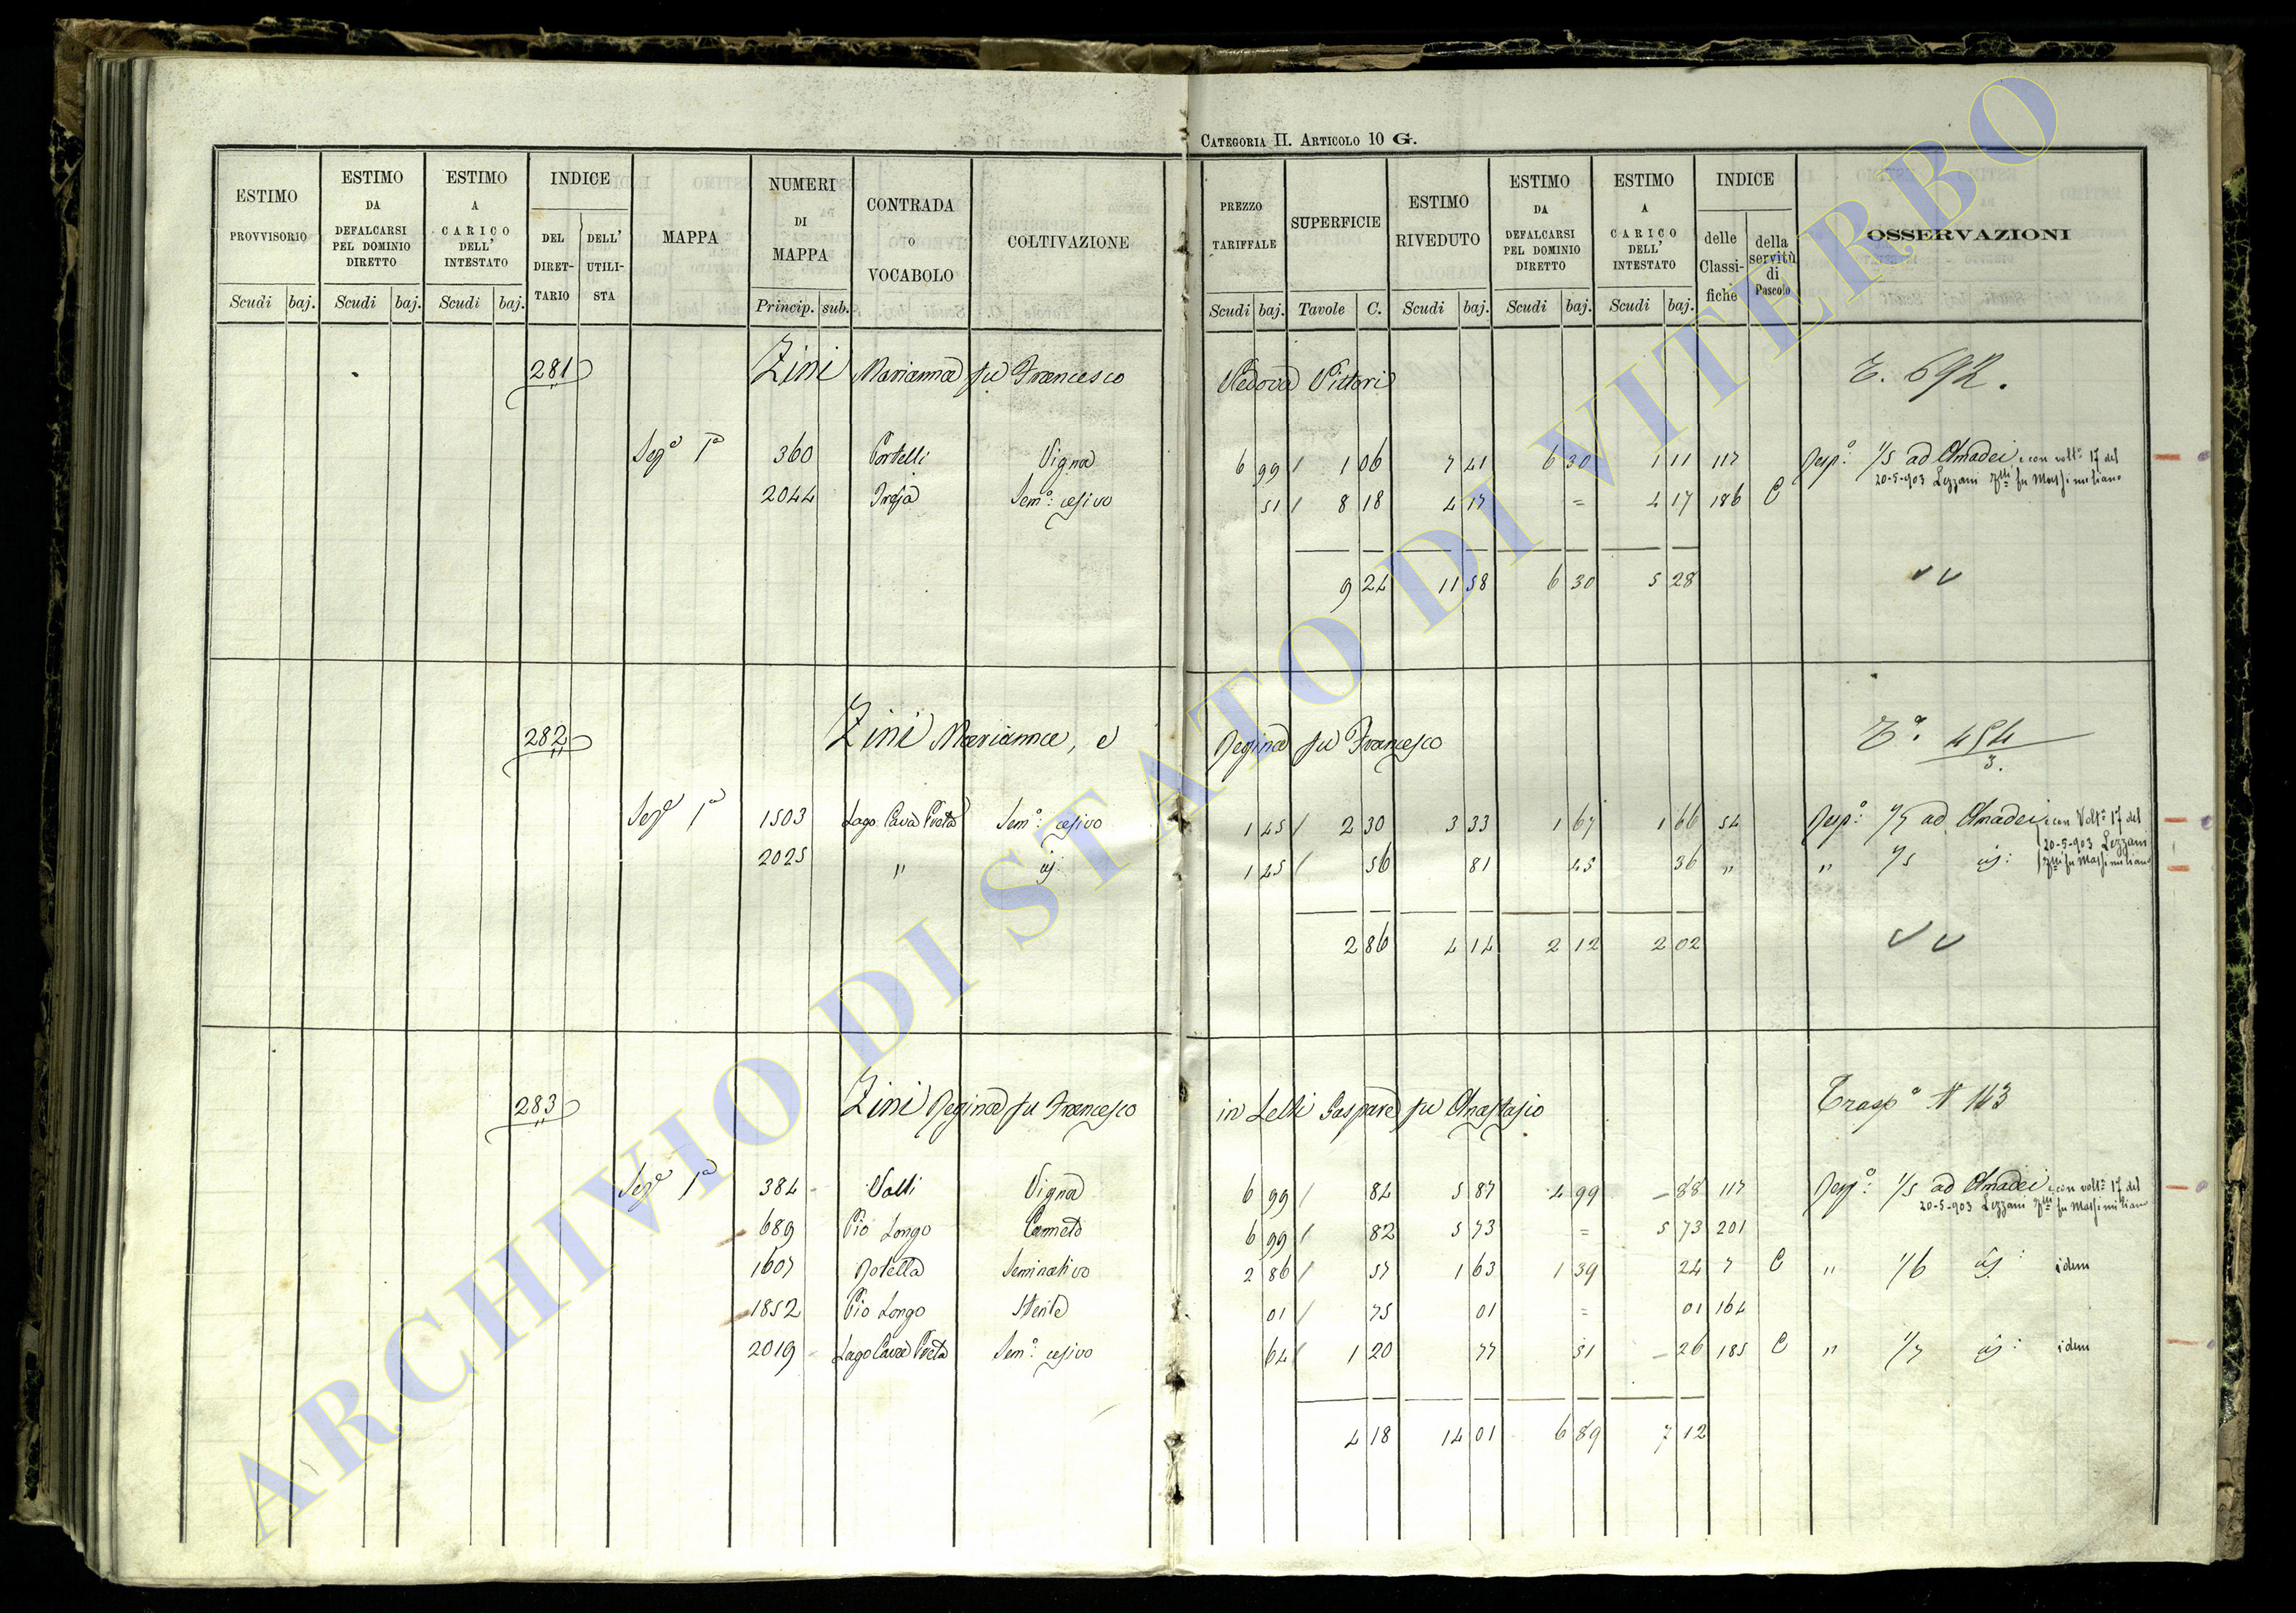 CATEGORIA II. ARTICOLO 10 G.
ESTIMO PROVVISORIO Scudi baj.
ESTIMO DA DEFALCARSI PEL DOMINIO DIRETTO Scudi baj.
ESTIMO A CARICO DELL' INTESTATO Scudi baj.
INDICE DEL DIRETTARIO DELL' UTILISTA
MAPPA
NUMERI DI MAPPA Princip. sub.
CONTRADA O VOCABOLO
COLTIVAZIONE
PREZZO TARIFFALE Scudi baj.
SUPERFICIE Tavole C.
ESTIMO RIVEDUTO Scudi baj.
ESTIMO DA DEFALCARSI PEL DOMINIO DIRETTO Scudi baj.
ESTIMO A CARICO DELL' INTESTATO Scudi baj.
INDICE delle Classifiche della servitù di Pascolo
OSSERVAZIONI
281 Zini Marianna fu Francesco Vedova Vittori
Seze 1a 360 Portelli Vigna 6 99 / 1 06 7 41 6 30 1 11 117 Resp: 1/5 ad Amadei e con volta 17 del
20-5-903 Lezzani
2044 Sem: cesivo 51 / 8 18 4 17 = 4 17 186 C
9 24 11 58 6 30 5 28
282 Zini Marianna, e Regina fu Francesco
Seze 1a 1503 Lago Cava Preta Sem: cesivo 1 45 / 2 30 3 33 1 67 1 66 54 Resp: 1/7 ad Amadei e con Volta 17 del
20-5-903 Lezzani
2025 " 1 45 / 56 81 45 36 " " 1/5
2 86 4 14 2 12 2 02
283 Zini Regina fu Francesco in Lelli Gaspare fu Anastasio Traspo N 143
Seze 1a 384 Valli Vigna 6 99 / 84 5 87 4 99 88 117 Resp: 1/5 ad Amadei e con volta 17 del
20-5-903 Lezzani
689 Pio Longo Canneto 6 99 / 82 5 73 = 5 73 201
1607 Rotella Seminativo 2 86 / 57 1 63 1 39 24 7 C " 1/6 idem
1852 Pio Longo Sterile 01 / 75 01 = 01 164
2019 Lago Cava Preta Sem: cesivo 64 / 1 20 77 51 26 185 C " 1/7 idem
4 18 14 01 6 89 7 12
ARCHIVIO DI STATO DI VITERBO